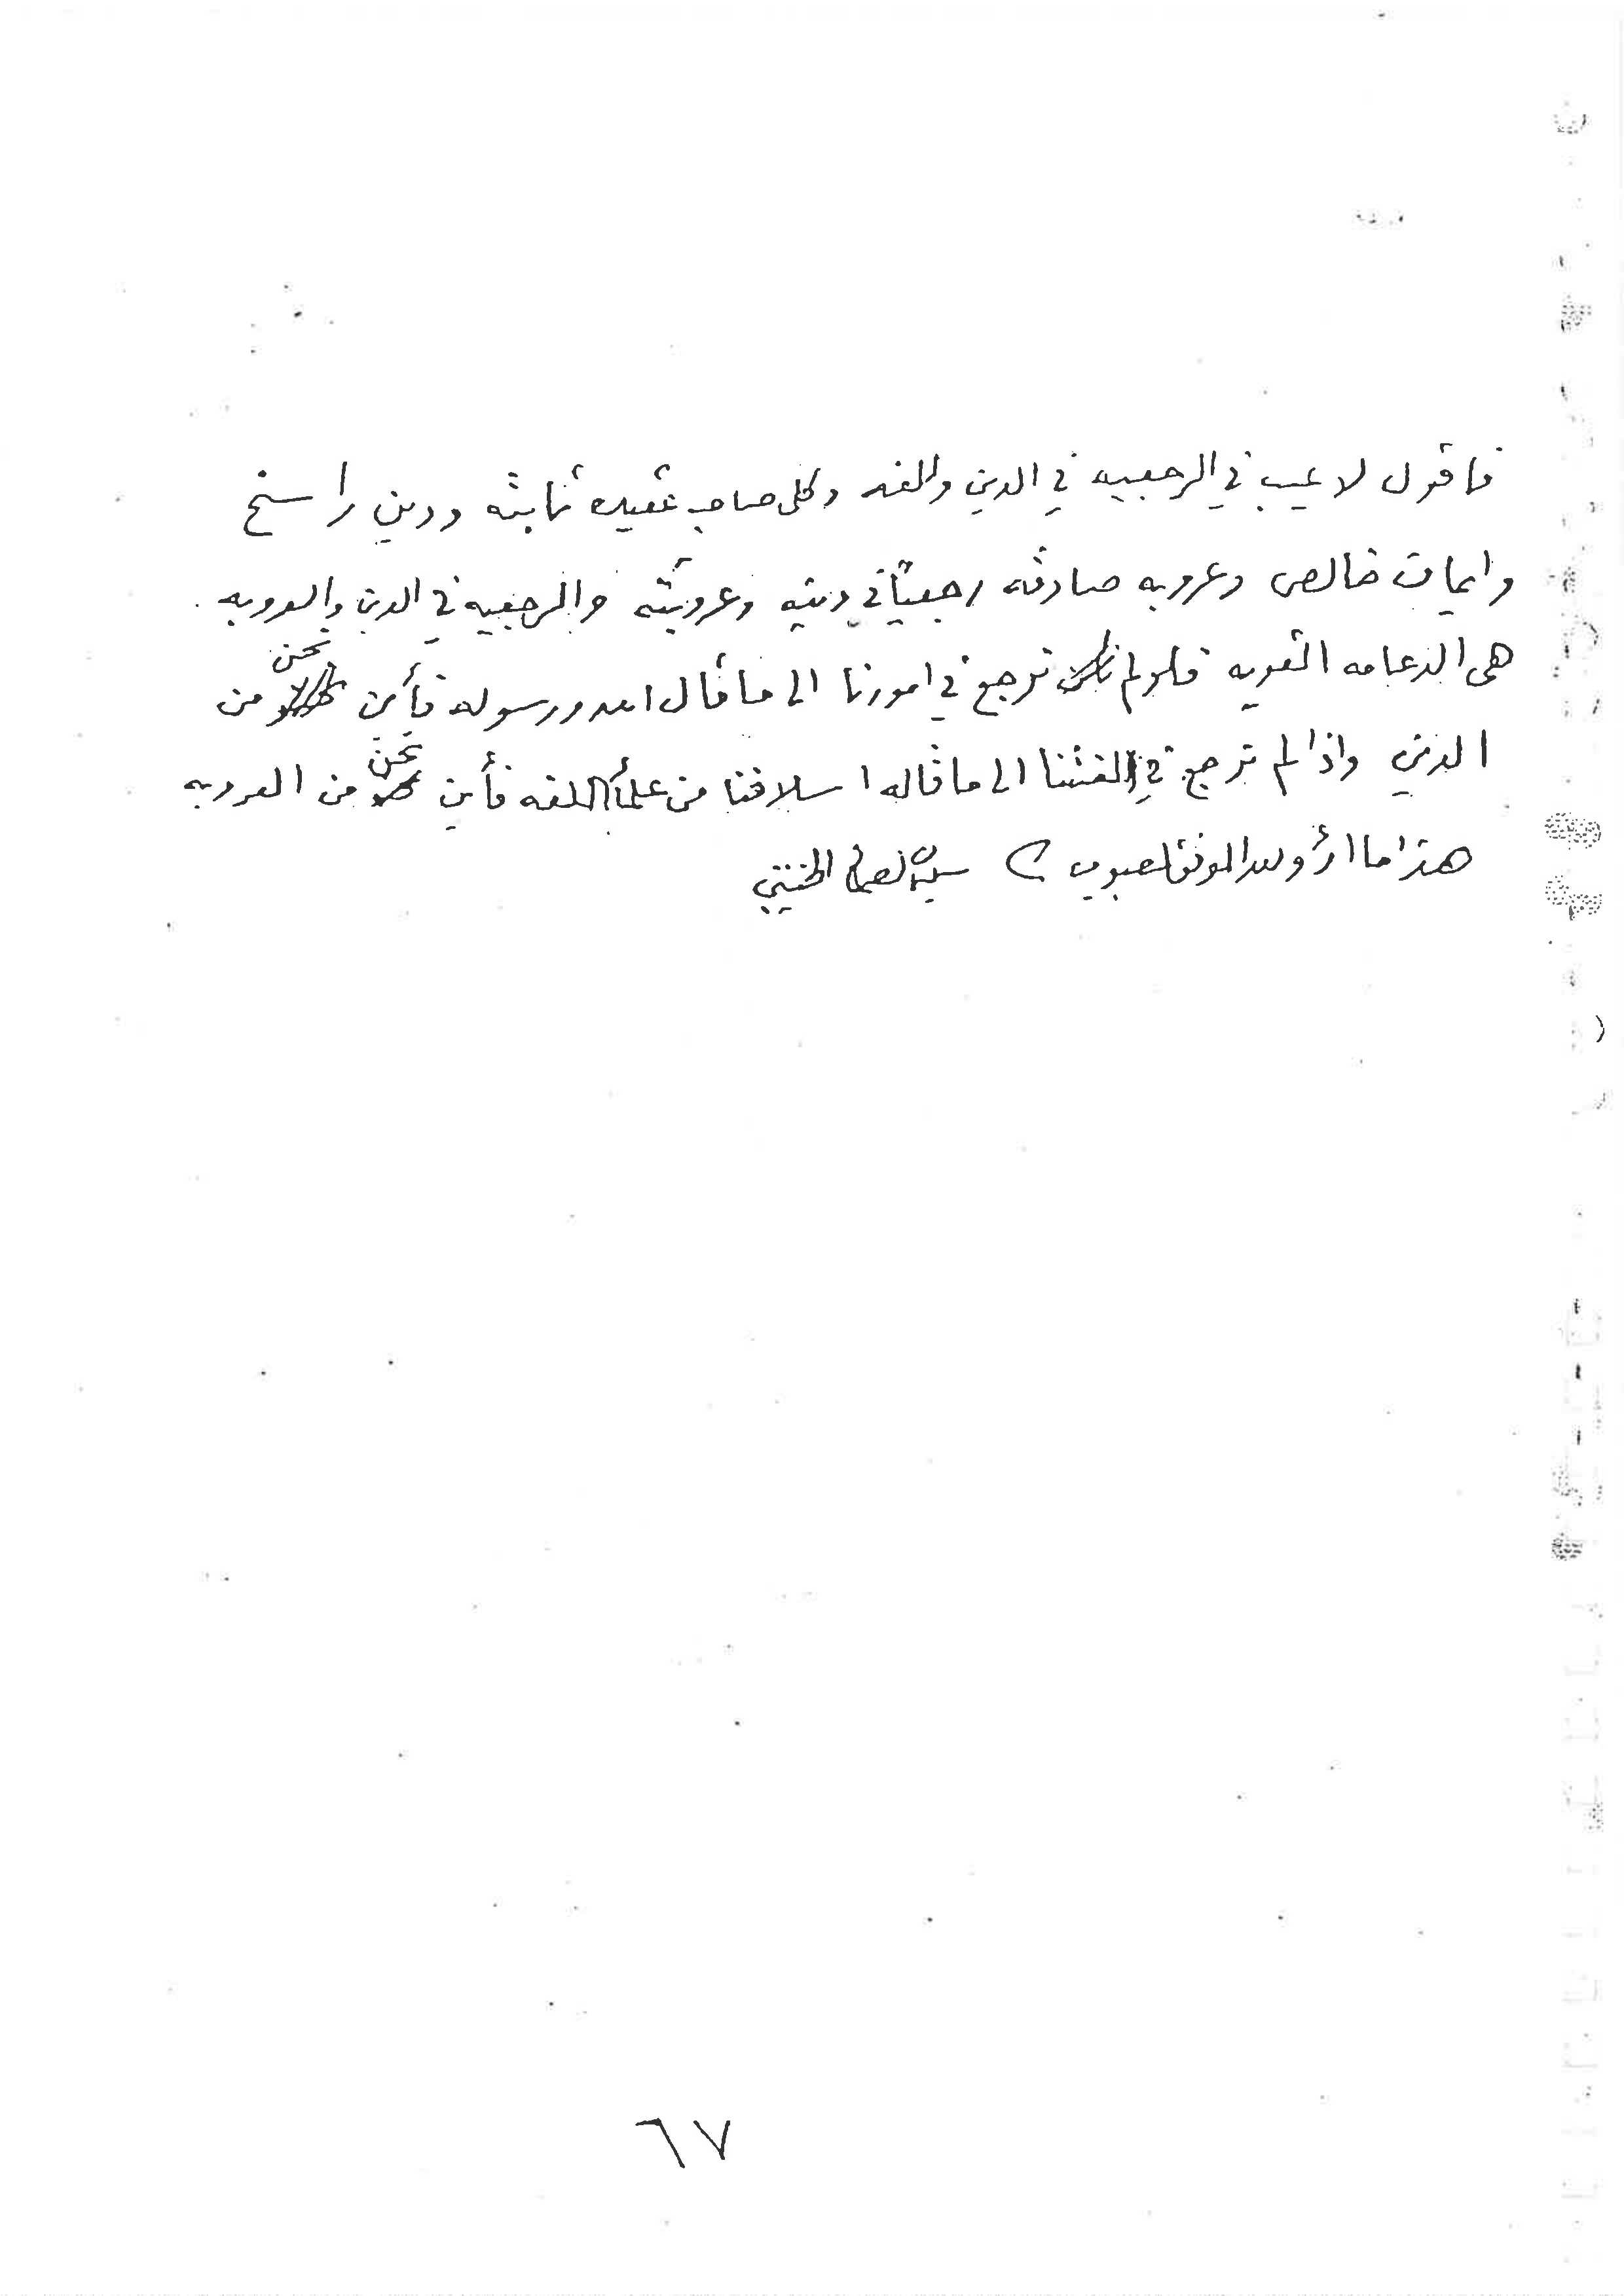 فاقول لا عيب في الرجعيه في الدين والغه وكل صاحب عقيده ثابته ودين راسخ
وايمان خالص وعروبه صادقه رجعيًا في دينه وعروبته والرجعيه في الدين والعروبه
هى الدعامه القويه فلو لم نكن نرجع في امورنا الى ما قال الله ورسوله فأين نحن من
الدين واذا لم نرجع في لغتنا الى ما قاله اسلافنا من علمأ اللغه فأين نحن من العروبه
هذا ما اراه والله الموفق للصواب
٦٧